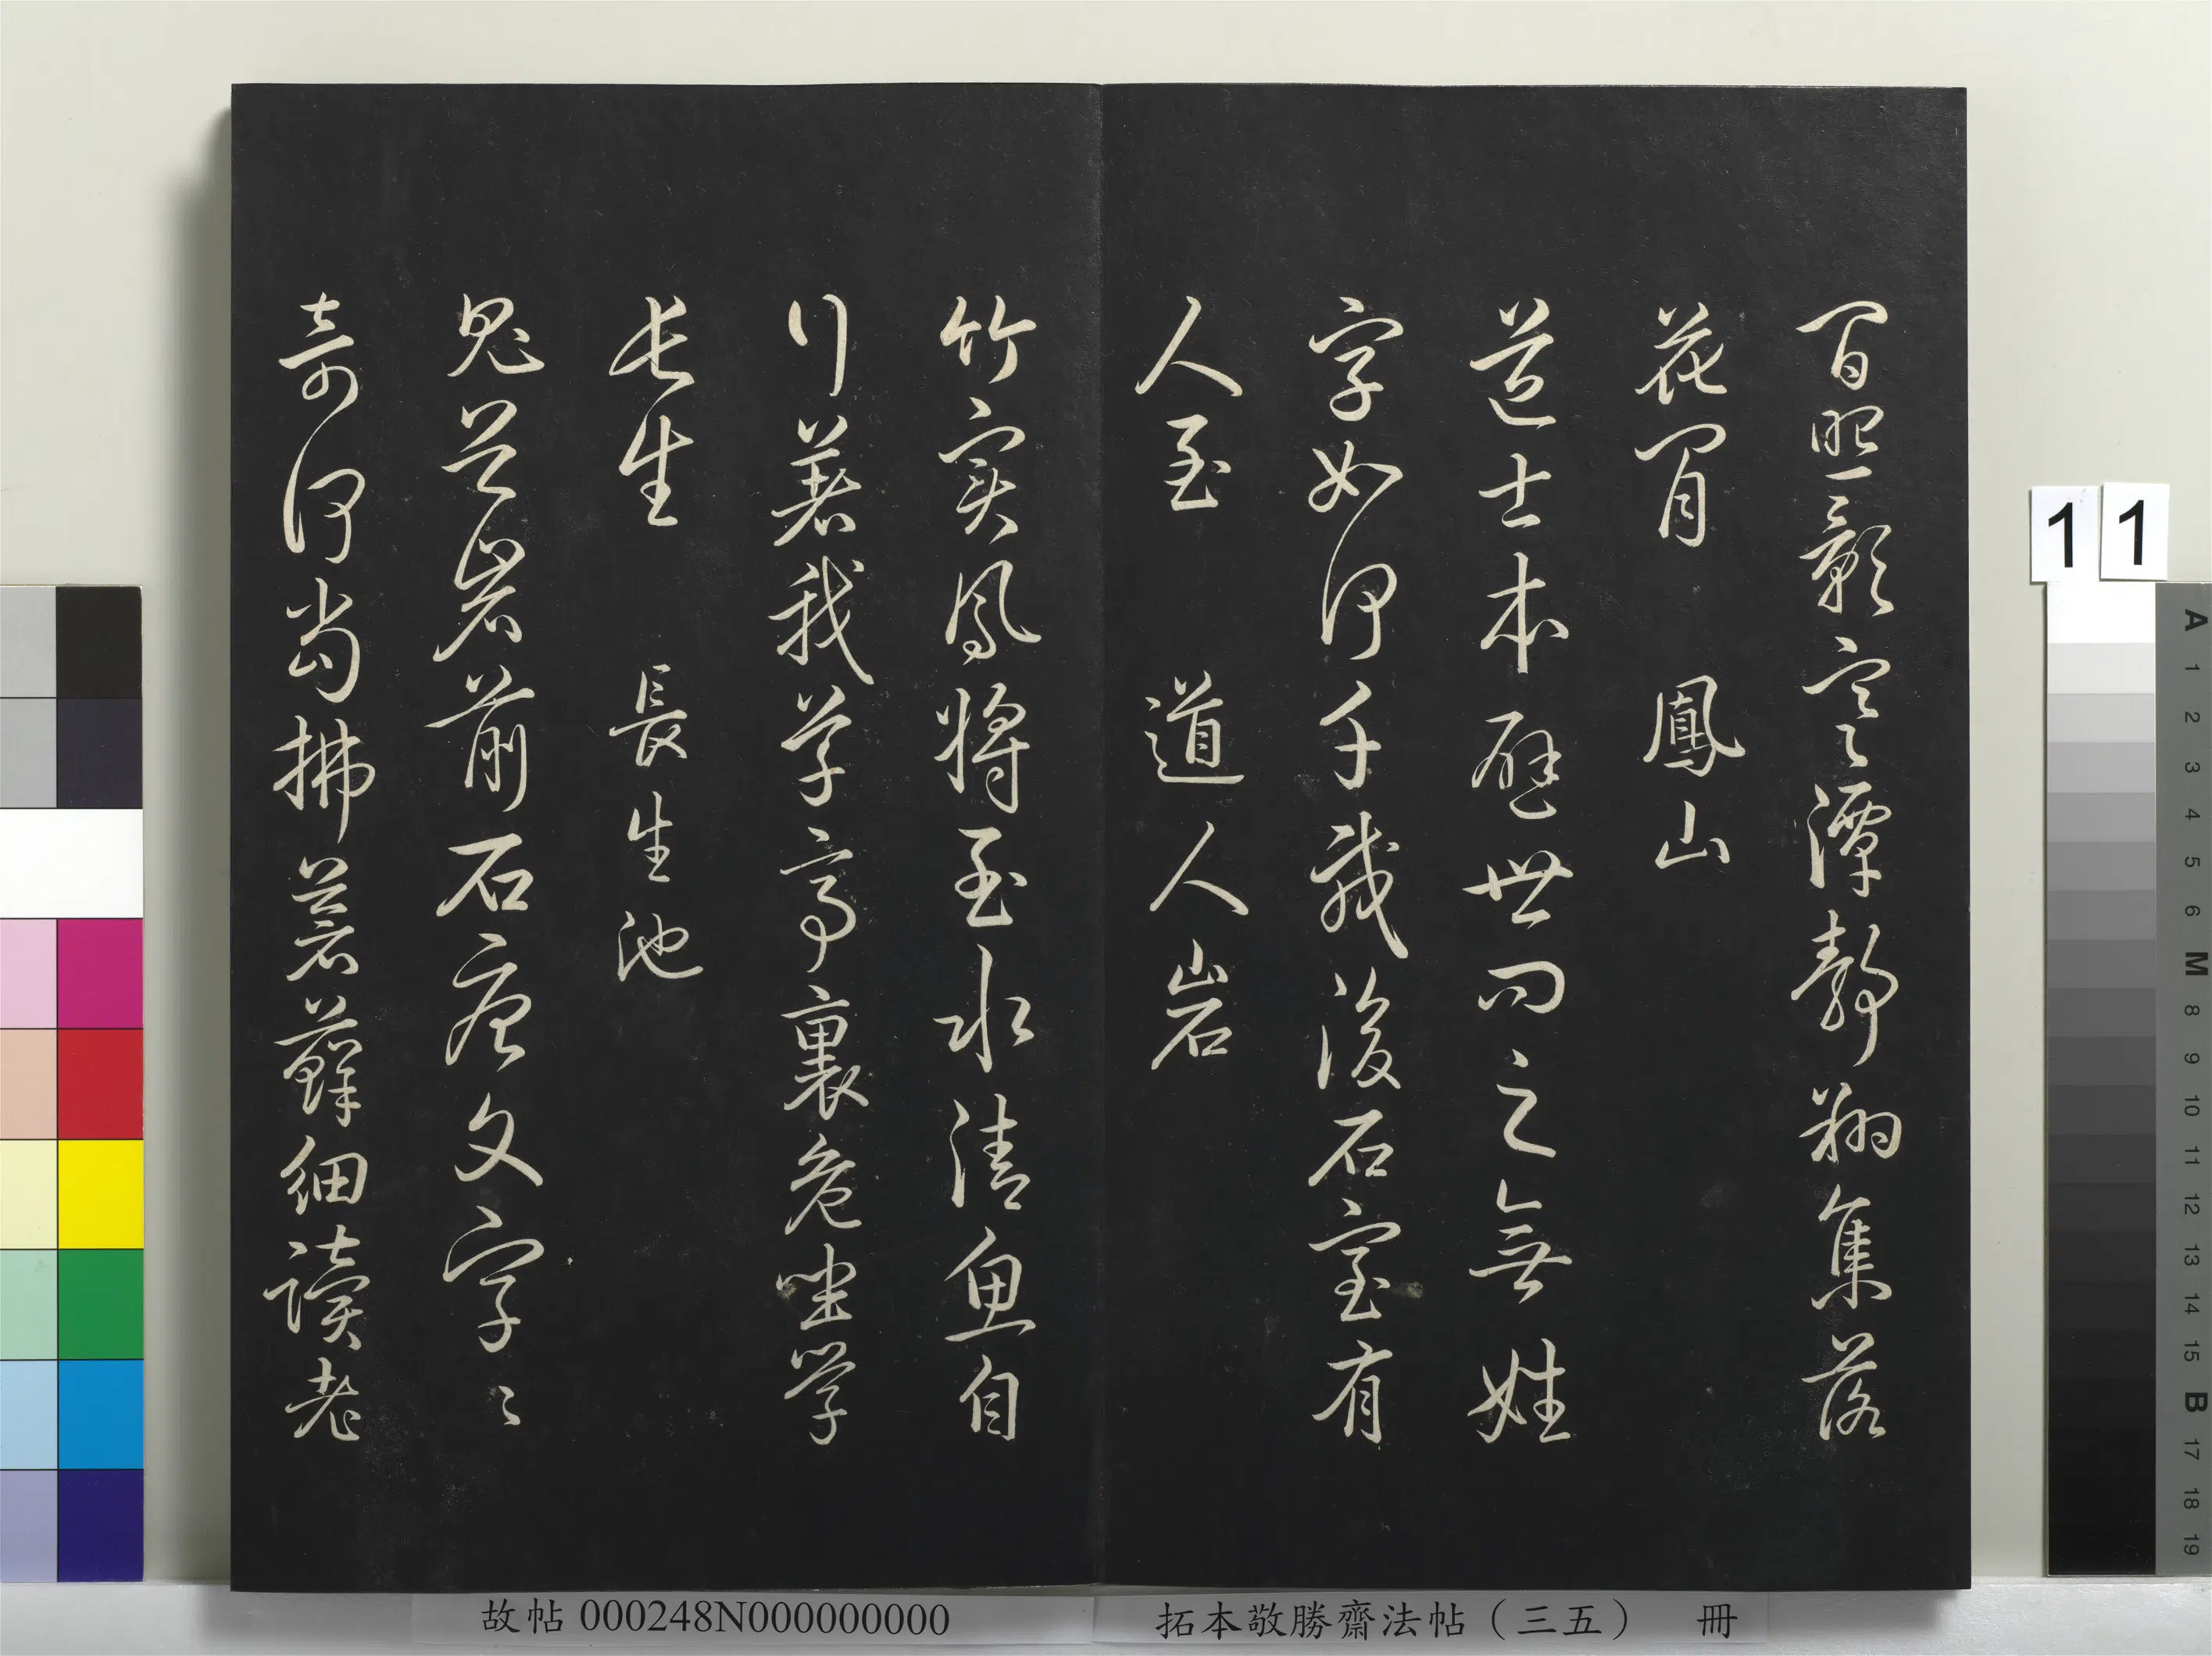 間照影寒潭靜翔集落
花間　鳳山
道士本避世問之無姓
字如何千載後石室有
人至　道人岩
竹實鳳將至水清魚自
行著我茅亭裏危坐學
長生　長生池
鬼谷岩前石唐文字〻
奇何當拂蒼蘚細讀老
11
故帖 000248N000000000
拓本敬勝齋法帖（三五）　冊
A 1 2 3 4 5 6 M 8 9 10 11 12 13 14 15 B 17 18 19